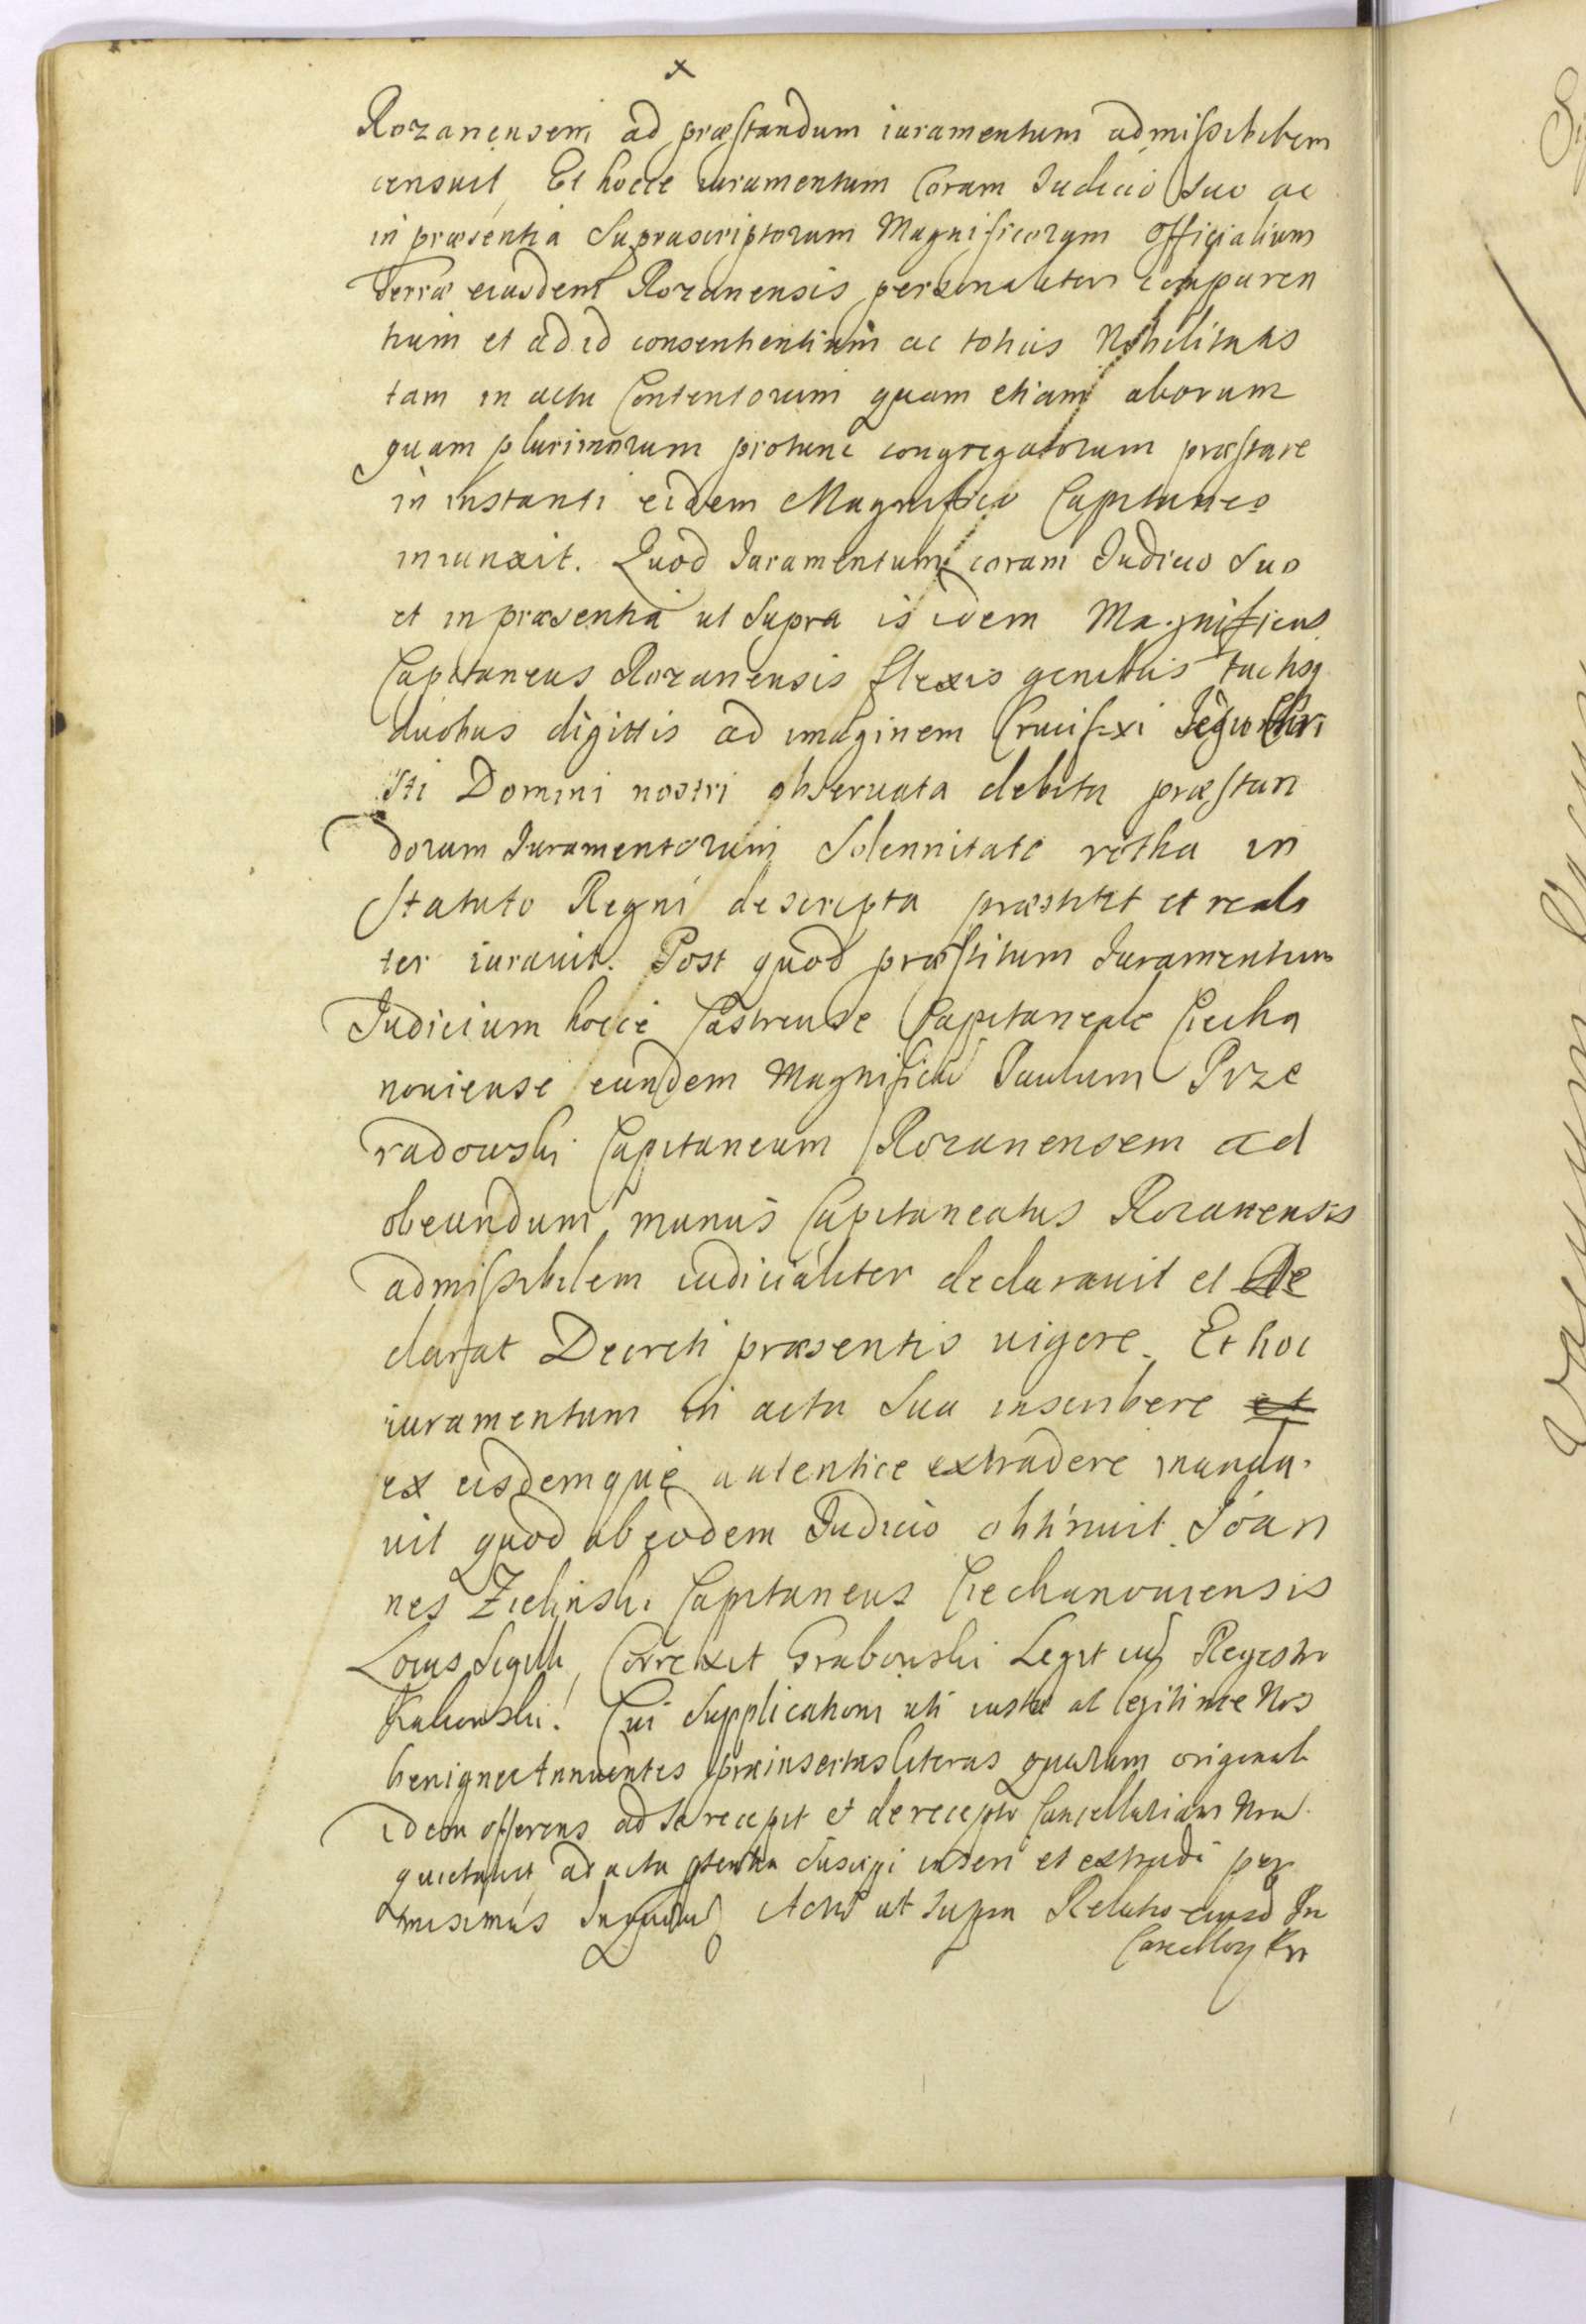 x
Rozanensem ad præstandum iuramentum admissibilem
censuit, Et hocce iuramentum Coram Iudicio Suo ac
in præsentia Suprascriptorum Magnificorum Officialium
Terræ eiusdem Rozanensis personaliter Comparen
tium et ad id consentientium ac totius Nobilitatis
tam in actu Contentorum quam etiam aliorum
quam plurimorum protunc congregatorum præstare
in instanti eidem Magnifico Capitaneo
iniunxit. Quod Iuramentum coram Iudicio Suo
et in præsentia ut Supra is idem Magnificus
Capitaneus Rozanensis flexis genibus tactisq
duobus digittis ad imaginem Crucifixi Iesu Chri
sti Domini nostri observata debita præstan
dorum Iuramentorum Solennitate rotha in
Statuto Regni descripta præstitit et reali
ter iurauit. Post quod præstitum Iuramentum
Iudicium hocce Castrense Capitaneale Ciecha
nouiense eundem Magnificu Paulum Prze
radowski Capitaneum Rozanensem ad
obeundum munus Capitaneatus Rozanensis
admissibilem iudicialiter declarauit et de
clarat Decreti præsentis uigore. Et hoc
iuramentum in acta Sua inscribere et
ex eisdemque autentice extradere manda
uit quod ab eodem Iudicio obtinuit. Ioan
nes Zielinski Capitaneus Ciechanouiensis
Locus Sigilli, Correxit Grabowski Legit cu Regestro
Cui Supplicationi uti iustæ ac legitimæ Nos
benigne Annuentes præinsertas literas quarum original
idem offerens ad se recepit et de recepto Cancellariam Nra
quietauit ad acta pntia Suscipi inseri et extradi per
misimus Actu ut Supra Relatio eiusd